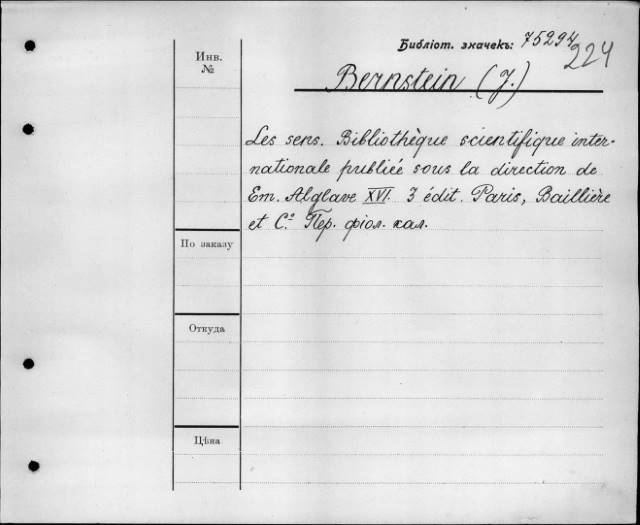 Библіот. значекъ: 75294
224
Инв.
№
Bernstein (J.)
Les sens. Bibliothèque scientifique inter-
nationale publiée sous la direction de
Em. Alglave XVI. 3 édit. Paris, Baillière
et Cº Пер. фіол. кал.
По заказу
Откуда
Цѣна